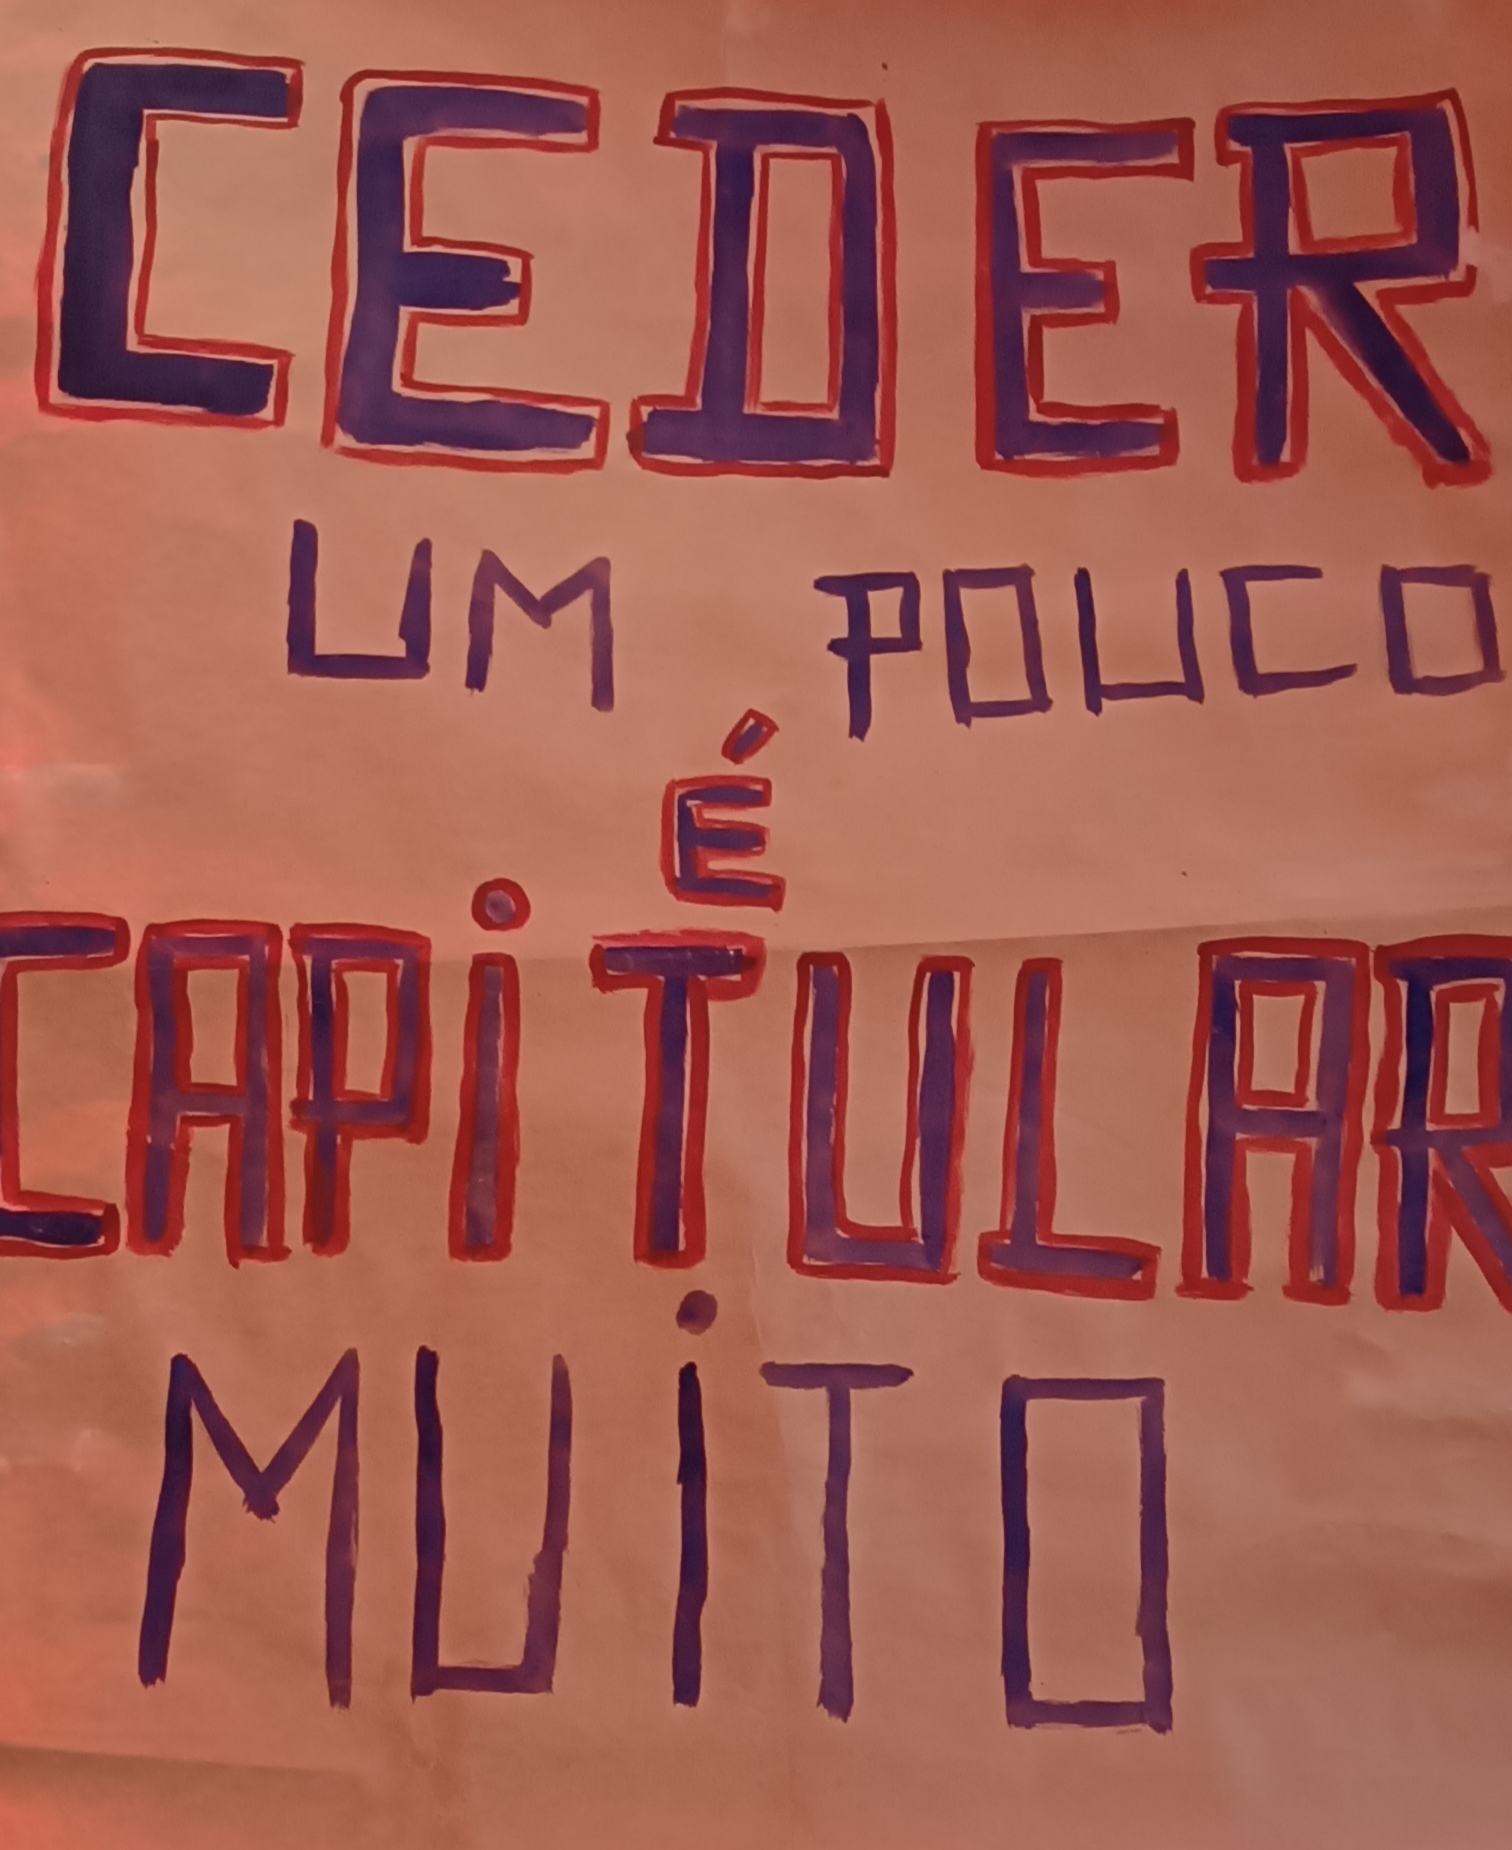 CEDER
UM POUCO
É
CAPiTULAR
MUiTO